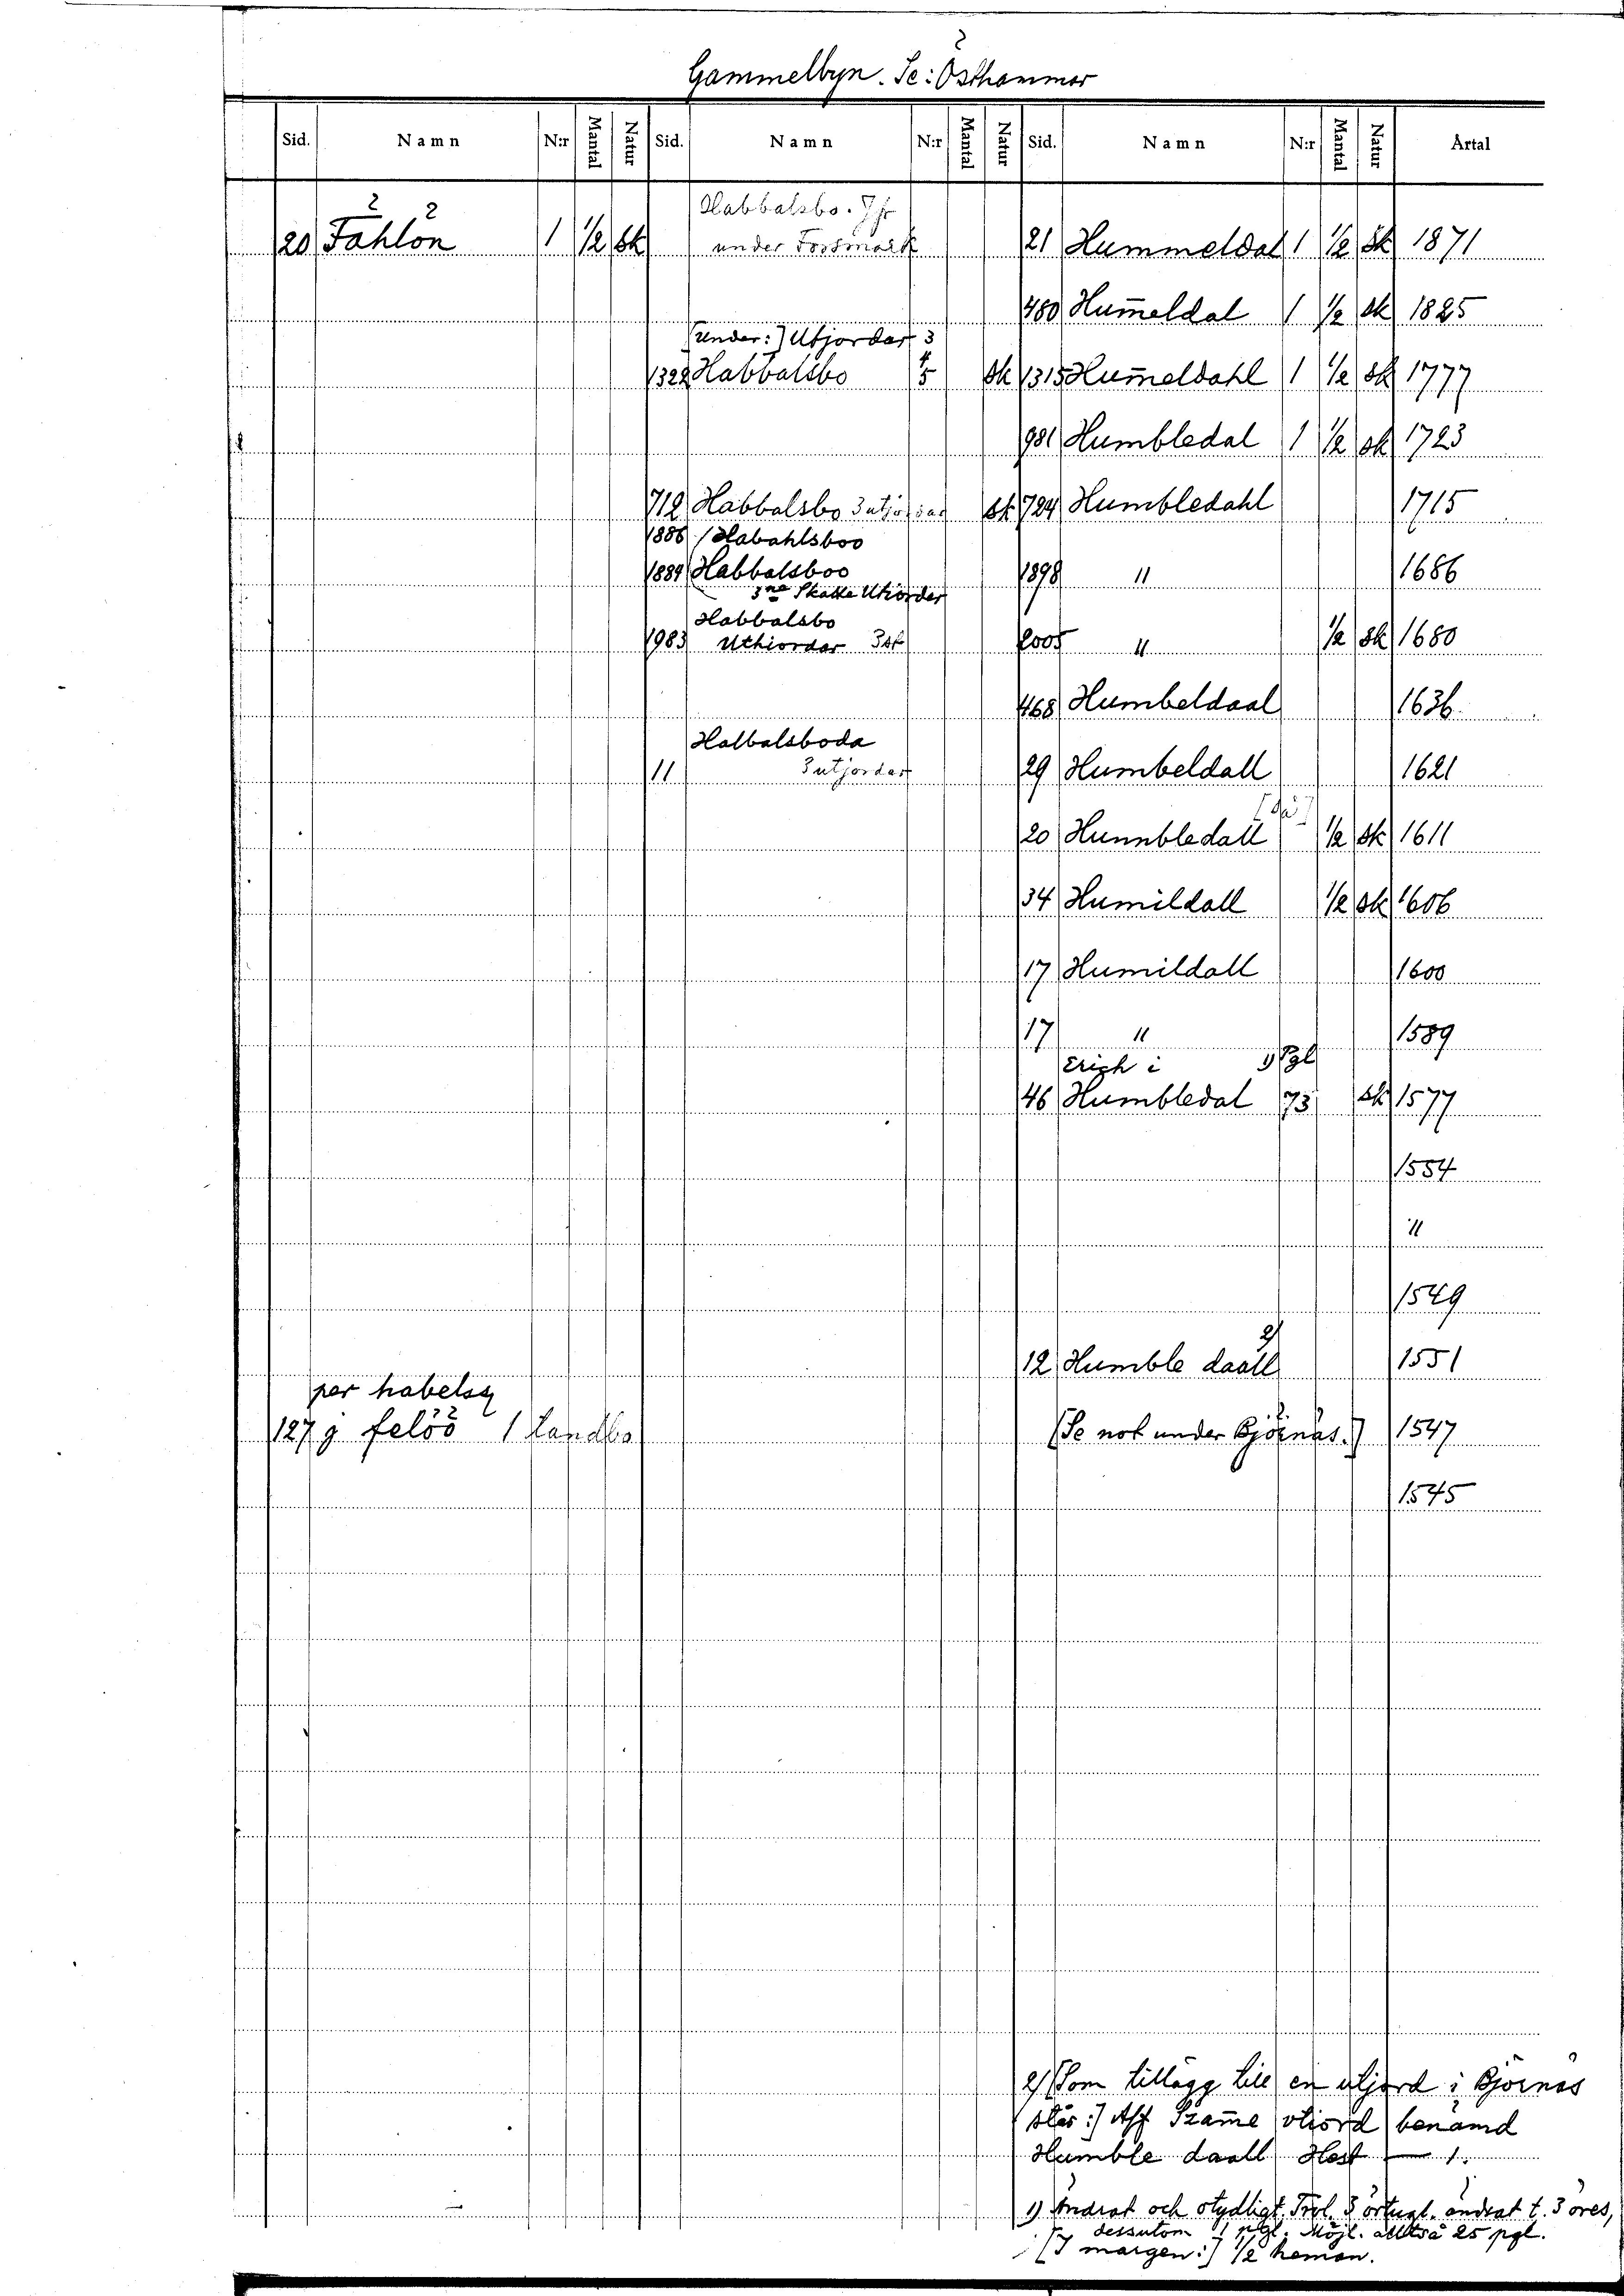 Gammelbyn. Se: Östhammar
Sid. Namn N:r Mantal Natur Sid. Namn N:r Mantal Natur Sid. Namn N:r Mantal Natur Årtal
Habbalsbo. Jfr
20 Fählön 1 1/2 sk under Forsmark 21 Hummeldal 1 1/2 Sk 1871
480 Hum̄eldal 1 1/2 sk 1825
[Under:] Utjordar 3
4
1322 Habbalsbo 5 sk 1315 Hum̄eldahl 1 1/2 sk 1777
981 Humbledal 1 1/2 sk 1723
712 Habbalsbo 3 utjordar sk 724 Humbledahl 1715
1886 Habahlsboo
1889 Habbalsboo 1898 " 1686
3ne Skatte Utiorder
Habbalsbo
1983 Uthiordar 3 st 2005 " 1/2 sk 1680
468 Humbeldaal 1636
Halbalsboda
11 3 utjordar 29 Humbeldall 1621
20 Hunnbledall 1/2 sk 1611
34 Humildall 1/2 sk 1606
17 Humildall 1600
17 " 1589
Erich i 1) Pgl
46 Humbledal 73 sk 1577
1554
"
1549
2)
12 Humble daall 1551
per habelsz
127 j felöö 1 landbo [Se not under Björnäs.] 1547
1545
2) [Som tillägg till en utjord i Björnäs
står:] Aff Szam̄e vtiord benämd
Humble daall Hest — 1.
1) Ändrat och otydligt. Trol. 3 örtugl. ändrat t. 3 öres,
dessutom 1 pgl. Möjl. alltså 25 pgl.
[I margen:] 1/2 heman.